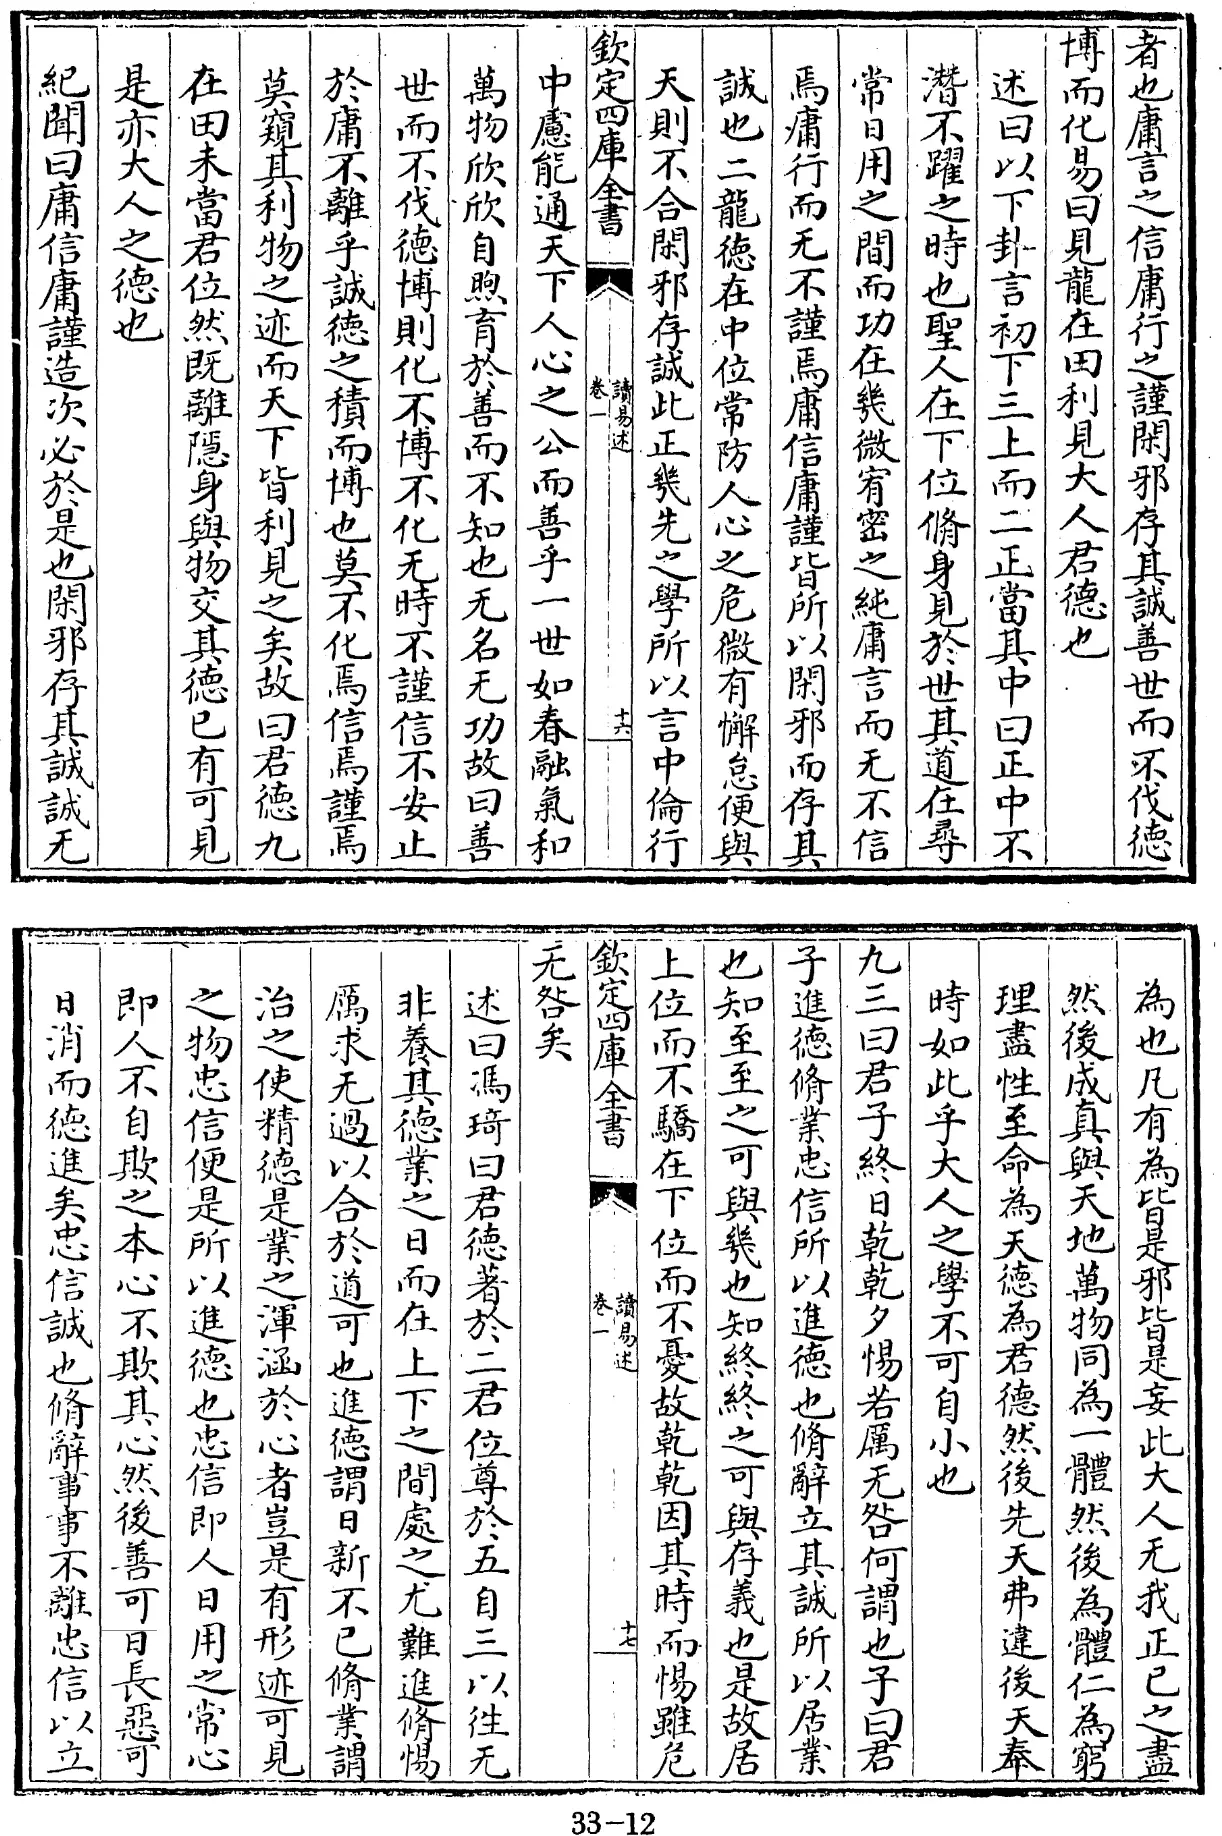 者也庸言之信庸行之謹閑邪存其誠善世而不伐德
博而化易曰見龍在田利見大人君德也
述曰以下卦言初下三上而二正當其中曰正中不
潛不躍之時也聖人在下位脩身見於世其道在尋
常日用之間而功在幾微宥密之純庸言而无不信
焉庸行而无不謹焉庸信庸謹皆所以閑邪而存其
誠也二龍德在中位常防人心之危微有懈怠便與
天則不合閑邪存誠此正幾先之學所以言中倫行
欽定四庫全書
讀易述
卷一
十六
中慮能通天下人心之公而善乎一世如春融氣和
萬物欣欣自煦育於善而不知也无名无功故曰善
世而不伐德博則化不博不化无時不謹信不安止
於庸不離乎誠德之積而博也莫不化焉信焉謹焉
莫窺其利物之迹而天下皆利見之矣故曰君德九
在田未當君位然既離隱身與物交其德已有可見
是亦大人之德也
紀聞曰庸信庸謹造次必於是也閑邪存其誠誠无
為也凡有為皆是邪皆是妄此大人无我正已之盡
然後成真與天地萬物同為一體然後為體仁為窮
理盡性至命為天德為君德然後先天弗違後天奉
時如此乎大人之學不可自小也
九三曰君子終日乾乾夕惕若厲无咎何謂也子曰君
子進德脩業忠信所以進德也脩辭立其誠所以居業
也知至至之可與幾也知終終之可與存義也是故居
上位而不驕在下位而不憂故乾乾因其時而惕雖危
欽定四庫全書
讀易述
卷一
十七
无咎矣
述曰馮琦曰君德著於二君位尊於五自三以往无
非養其德業之日而在上下之間處之尤難進脩惕
厲求无過以合於道可也進德謂日新不已脩業謂
治之使精德是業之渾涵於心者豈是有形迹可見
之物忠信便是所以進德也忠信即人日用之常心
即人不自欺之本心不欺其心然後善可日長惡可
日消而德進矣忠信誠也脩辭事事不離忠信以立
33-12